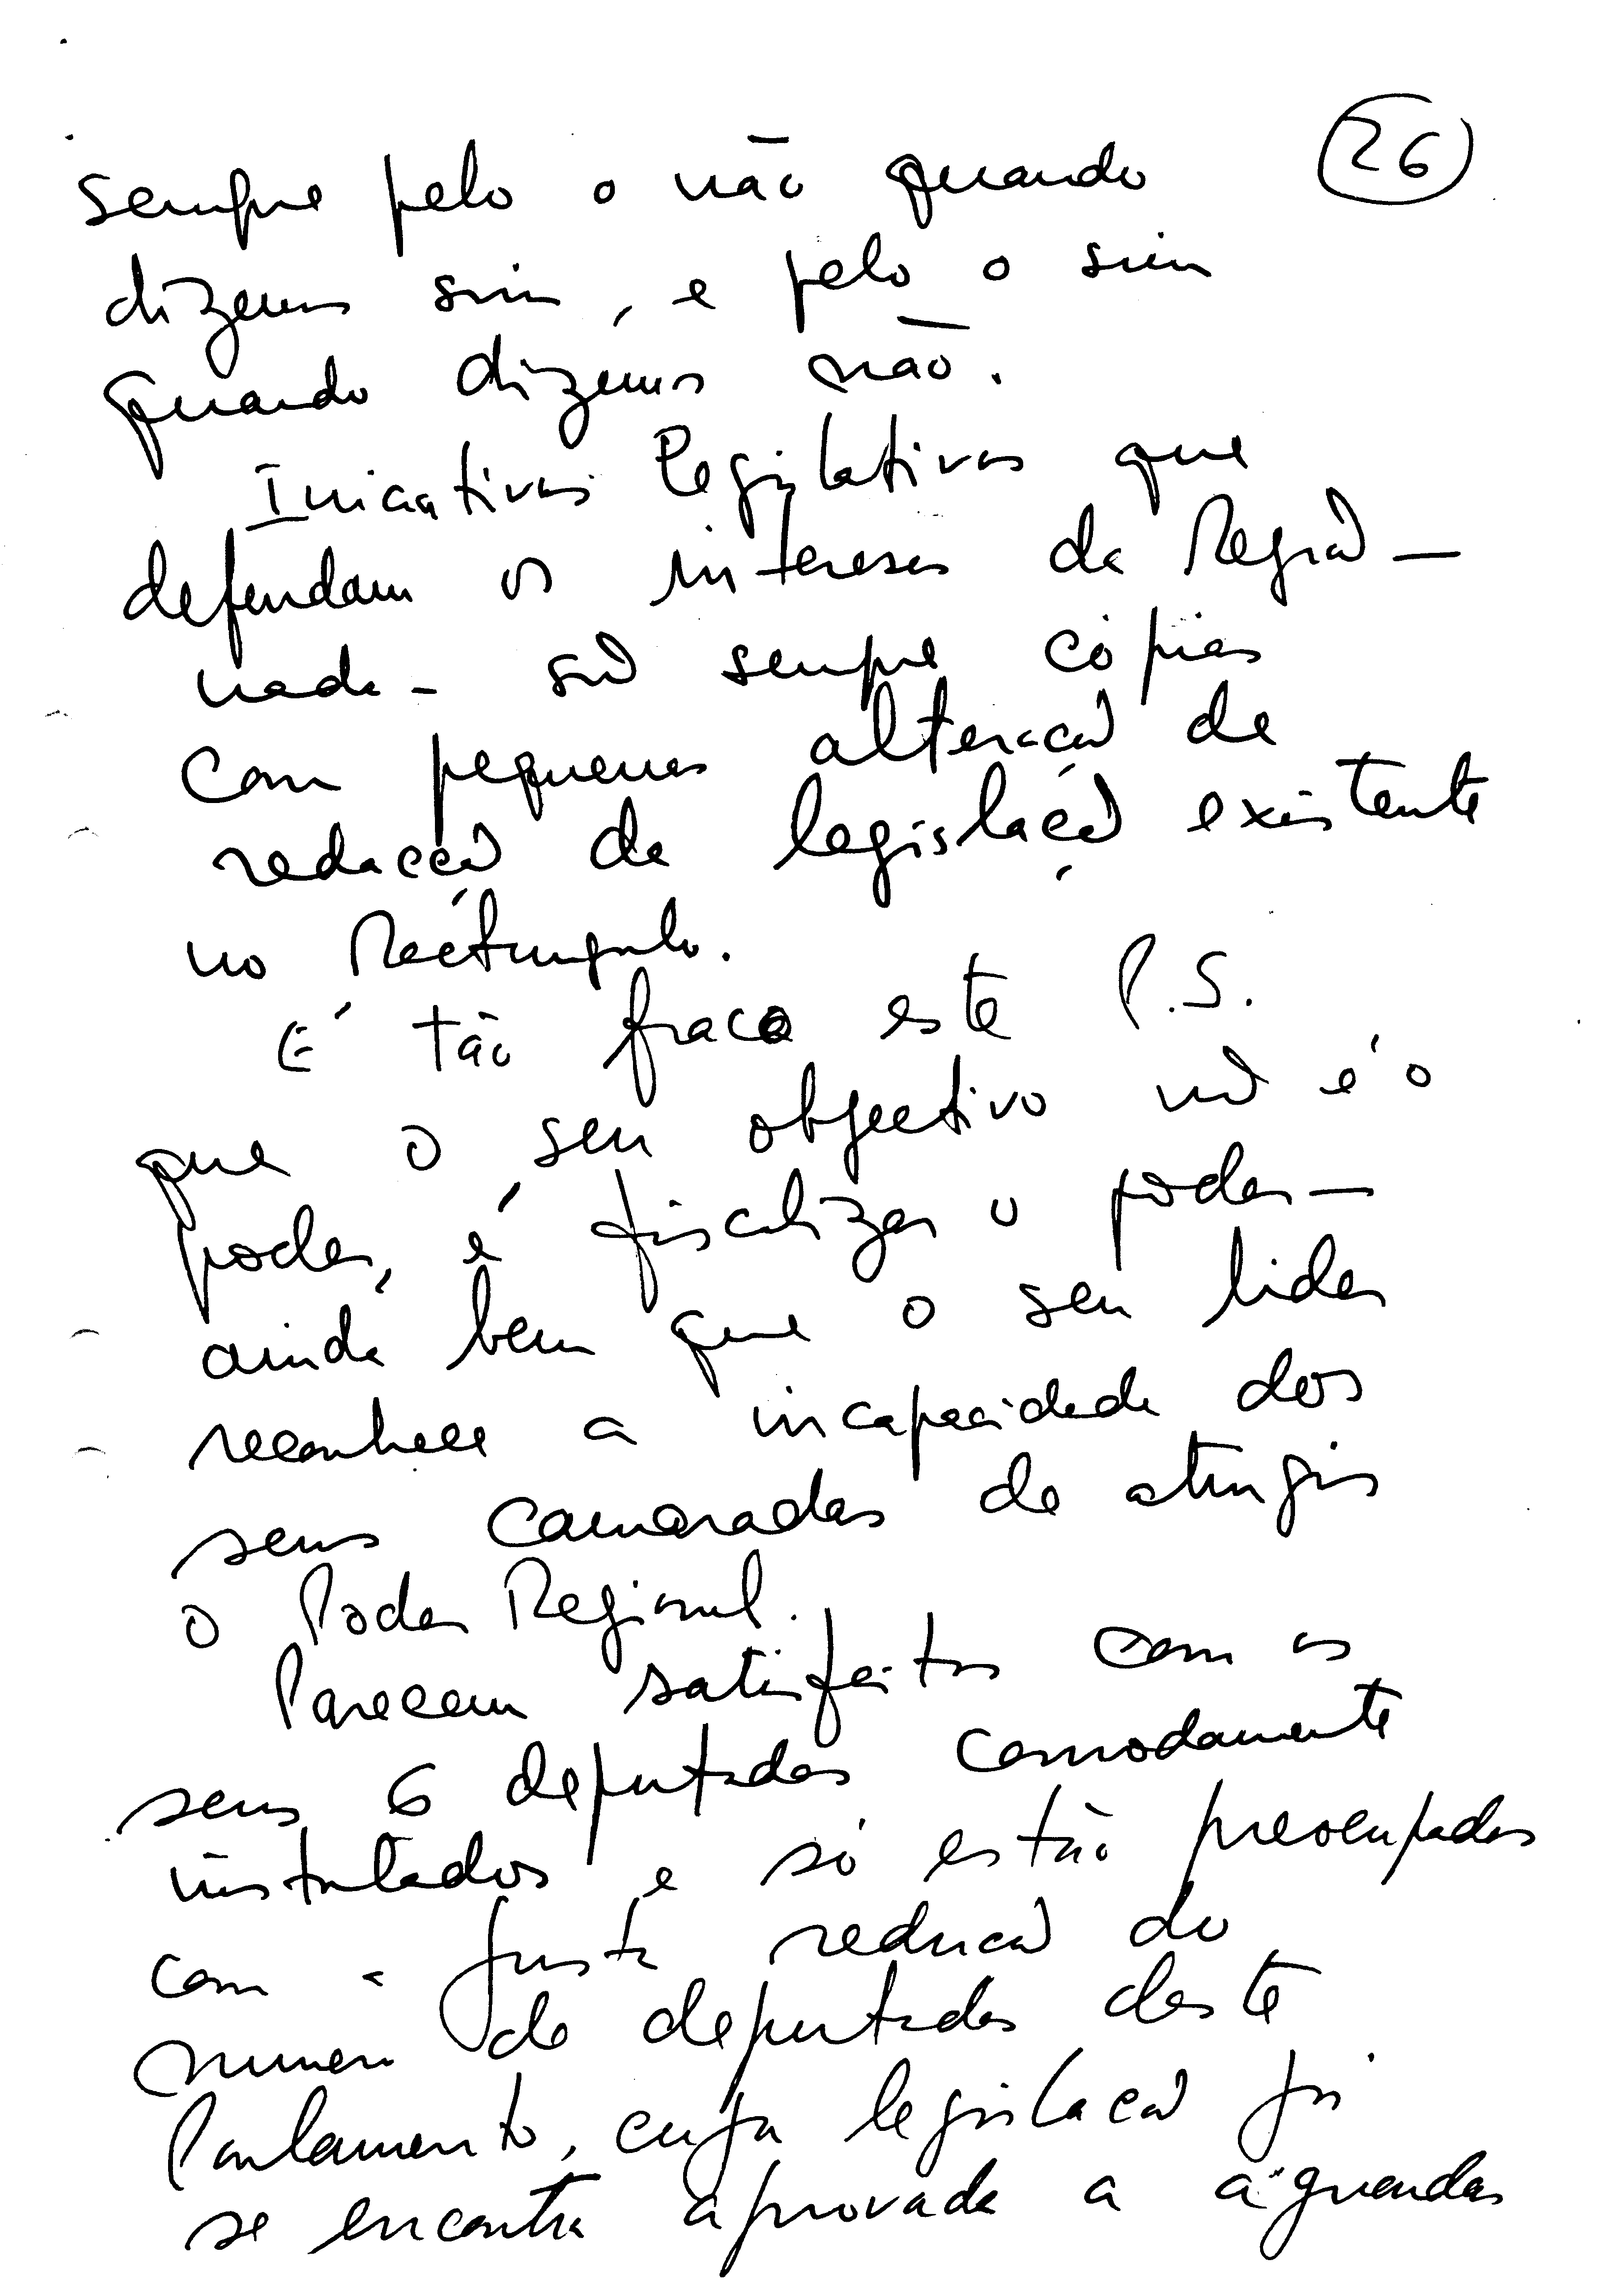 26
sempre pelo o não quando
dizemos sim, e pelo o sim
quando dizemos não.
Iniciativas legislativas que
defendam os interesses da Região -
nada - são sempre cópias
com pequenas alteração de
redacção da legislação existente
no Rectângulo.
É tão fraco este P.S.
que o seu objectivo não é o
poder, é fiscalizar o poder -
ainda bem que o seu lider
reconhece a incapacidade dos
seus camaradas de atingir
o Poder Regional.
Parecem satisfeitos com os
seus 6 deputados comodamente
instalados e só estão preocupados
com a justa redução do
numero de deputados deste
Parlamento, cuja legislação já
se encontra aprovada a aguardar